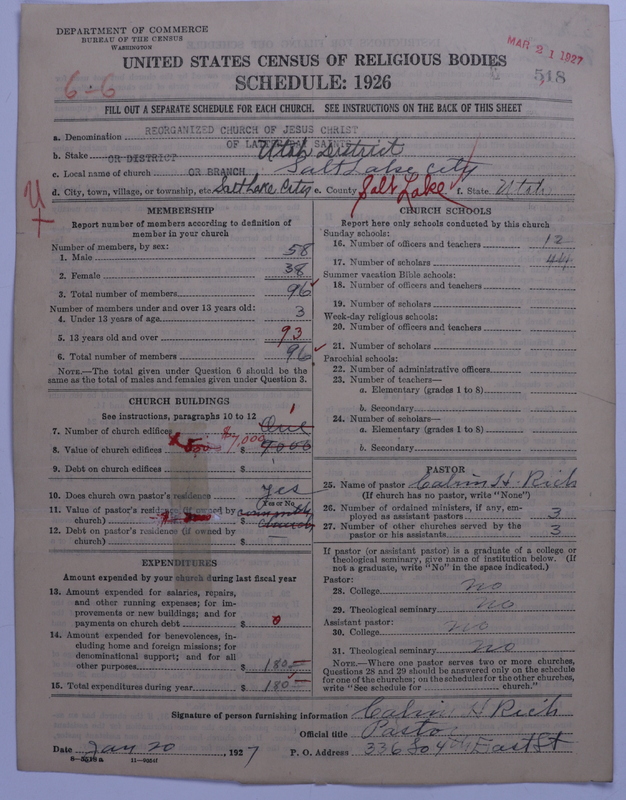 DEPARTMENT OF COMMERCE
BUREAU OF THE CENSUS
WASHINGTON
MAR 21 1927
UNITED STATES CENSUS OF RELIGIOUS BODIES
SCHEDULE: 1926
518
6-6
FILL OUT A SEPARATE SCHEDULE FOR EACH CHURCH. SEE INSTRUCTIONS ON THE BACK OF THIS SHEET
a. Denomination REORGANIZED CHURCH OF JESUS CHRIST
OF LATTER DAY SAINTS
b. Stake OR DISTRICT Utah District
c. Local name of church OR BRANCH Salt Lake City
d. City, town, village, or township, etc. Salt Lake City e. County Salt Lake f. State Utah
MEMBERSHIP
Report number of members according to definition of
member in your church
Number of members, by sex:
1. Male 58
2. Female 38
3. Total number of members 96
Number of members under and over 13 years old:
4. Under 13 years of age 3
5. 13 years old and over 93
6. Total number of members 96
NOTE.—The total given under Question 6 should be the
same as the total of males and females given under Question 3.
CHURCH BUILDINGS
See instructions, paragraphs 10 to 12
7. Number of church edifices One 1
8. Value of church edifices $7,000 $ 7000
9. Debt on church edifices $
10. Does church own pastor's residence yes
(Yes or No)
11. Value of pastor's residence (if owned by
church) $
12. Debt on pastor's residence (if owned by church
church) $ —
EXPENDITURES
Amount expended by your church during last fiscal year
13. Amount expended for salaries, repairs,
and other running expenses; for im-
provements or new buildings; and for
payments on church debt $ 0
14. Amount expended for benevolences, in-
cluding home and foreign missions; for
denominational support; and for all
other purposes $ 180
15. Total expenditures during year $ 180
CHURCH SCHOOLS
Report here only schools conducted by this church
Sunday schools:
16. Number of officers and teachers 12
17. Number of scholars 44
Summer vacation Bible schools:
18. Number of officers and teachers
19. Number of scholars
Week-day religious schools:
20. Number of officers and teachers
21. Number of scholars
Parochial schools:
22. Number of administrative officers
23. Number of teachers—
a. Elementary (grades 1 to 8)
b. Secondary
24. Number of scholars—
a. Elementary (grades 1 to 8)
b. Secondary
PASTOR
25. Name of pastor Calvin H. Rich
(If church has no pastor, write "None")
26. Number of ordained ministers, if any, em-
ployed as assistant pastors 3
27. Number of other churches served by the
pastor or his assistants 3
If pastor (or assistant pastor) is a graduate of a college or
theological seminary, give name of institution below. (If
not a graduate, write "No" in the space indicated.)
Pastor:
28. College no
29. Theological seminary no
Assistant pastor:
30. College no
31. Theological seminary no
NOTE.—Where one pastor serves two or more churches,
Questions 28 and 29 should be answered only on the schedule
for one of the churches; on the schedules for the other churches,
write "See schedule for church."
Signature of person furnishing information Calvin H Rich
Official title Pastor
Date Jan 20, 1927 P. O. Address 336 So 4th East St
8—5518a 11—9034f